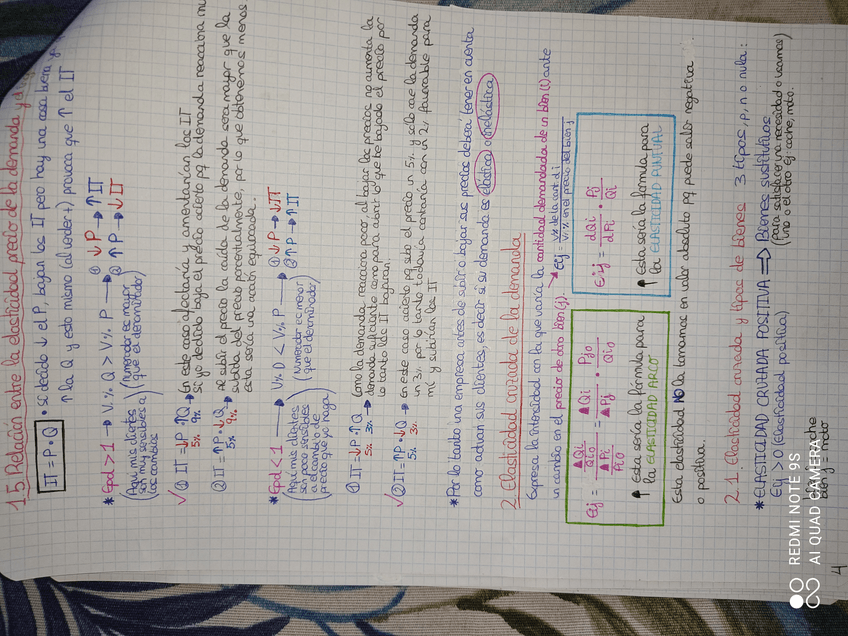 1.5. Relación entre la elasticidad precio de la demanda y
IT = P·Q • si decido ↓ el P, bajan los IT pero hay una cosa buena y
↑ la Q y esto mismo (al vender +) provoca que ↑ el IT
* Epd > 1 → V.% Q > V% P → ① ↓P → ↑IT
② ↑P → ↓IT
(Aquí mis clientes son muy sensibles a los cambios)
(Numerador es mayor que el denominador)
✓ ① IT = ↓P · ↑Q → En este caso afectaría y aumentarían los IT
5% 9%
si yo decido baja el precio acierto pq la demanda reacciona
② IT = ↑P · ↓Q → al subir el precio la caída de la demanda sera mayor que la
5% 9%
subida del precio porcentualmente, por lo que obtenemos menos
esta sería una acción equivocada.
* Epd < 1 → V% D < V% P → ① ↓P → ↓IT
② ↑P → ↑IT
(Aquí mis clientes son poco sensibles a el cambio de precio que yo haga)
(Numerador es menor que el denominador)
① IT = ↓P · ↑Q → Como la demanda reacciona poco al bajar los precios, no aumenta la
5% 3%
demanda suficiente como para cubrir lo que he bajado el precio por
lo tanto los IT bajarían.
✓ ② IT = ↑P · ↓Q → En este caso acierto pq subo el precio un 5% y solo cae la demanda
5% 3%
un 3% por lo tanto todavía contaría con un 2% favorable para
mí y subirían los IT
* Por lo tanto una empresa antes de subir o bajar sus precios deberá tener en cuenta
como actúan sus clientes, es decir si su demanda es elástica o inelástica
2. Elasticidad cruzada de la demanda
Expresa la intensidad con la que varía la cantidad demandada de un bien (i) ante
un cambio en el precio de otro bien (j) → Eij = V% de la cant. d i / V.% en el precio del bien j
Eij = ▲Qi/Qi0 / ▲Pj/Pj0 = ▲Qi/▲Pj · Pj0/Qi0
Eij = dQi/dPj · Pj/Qi
↑ Esta sería la fórmula para la ELASTICIDAD ARCO
↑ Esta sería la fórmula para la ELASTICIDAD PUNTUAL
Esta elasticidad NO la tomamos en valor absoluto pq puede salir negativa
o positiva.
2.1. Elasticidad cruzada y tipos de bienes 3 tipos, p, n o nula:
* ELASTICIDAD CRUZADA POSITIVA ⇒ Bienes sustitutivos
Eij > 0 (Elasticidad positiva)
(Para satisfacer una necesidad o usamos uno o el otro Ej: coche, moto.
coche
j = moto
4
REDMI NOTE 9S
AI QUAD CAMERA